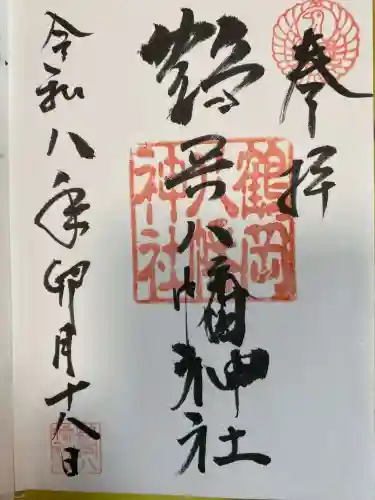 奉拝
鶴岡八幡神社
鶴岡
八幡
神社
令和八年卯月十八日